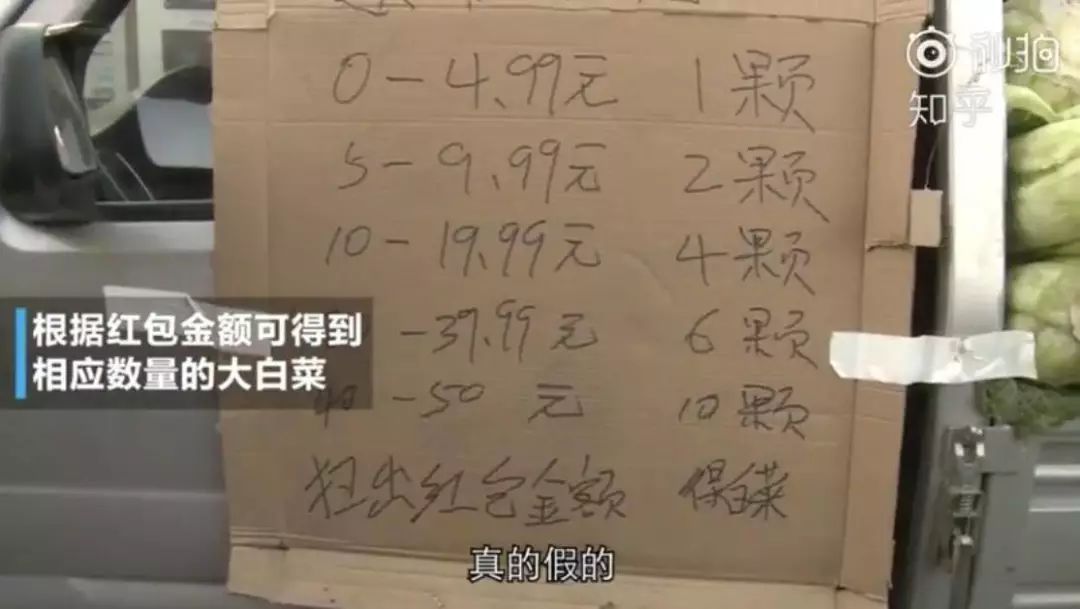 秒拍
知乎
0-4.99元 1颗
5-9.99元 2颗
10-19.99元 4颗
-39.99元 6颗
40-50元 10颗
红包金额 白菜
根据红包金额可得到
相应数量的大白菜
真的假的